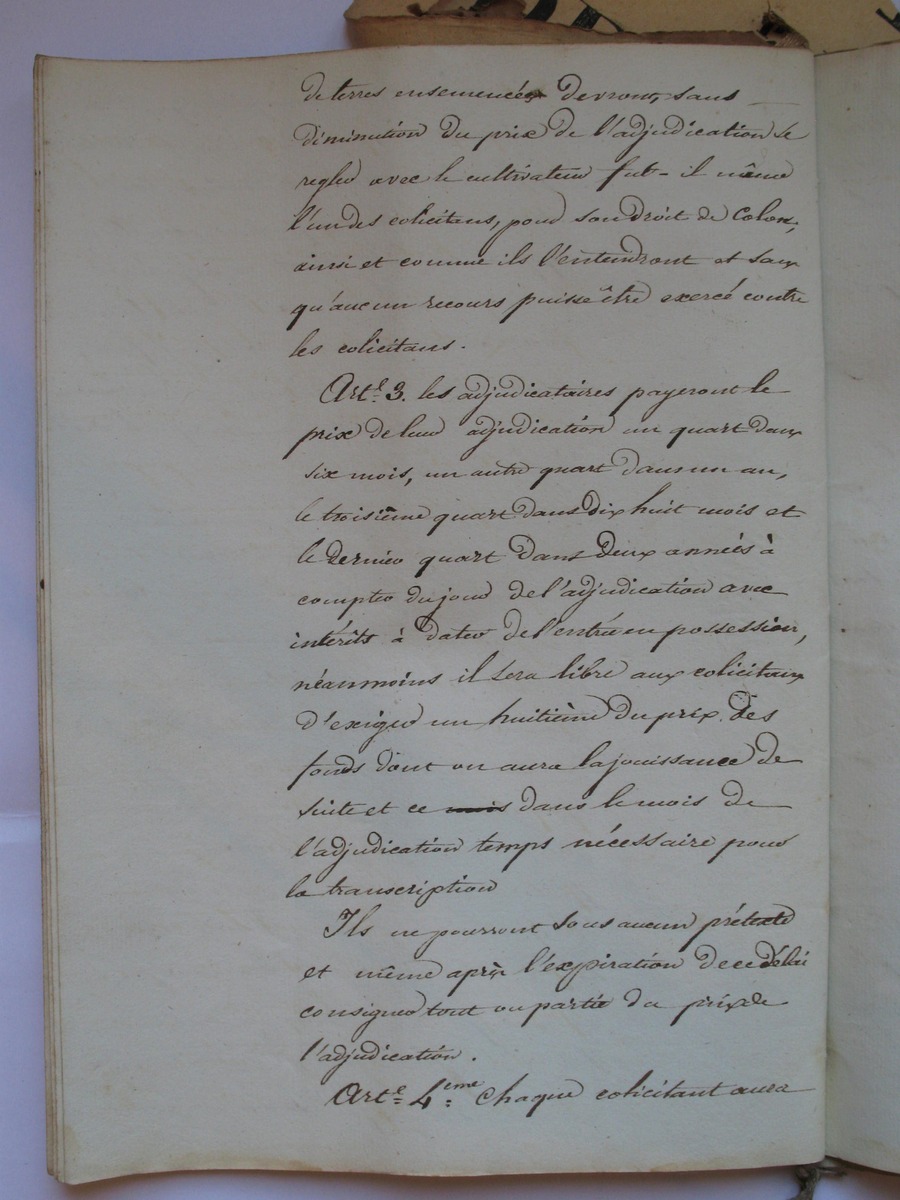 de terres ensemencées devront, sans
diminution du prix de l'adjudication se
regler avec le cultivateur fut-il même
l'un des colicitans, pour son droit de Colon,
ainsi et comme ils l'entendront et sans
qu'aucun recours puisse être exercé contre
les colicitans.
Arte 3. les adjudicataires payeront le
prix de leur adjudication un quart dans
six mois, un autre quart dans un an,
le troisième quart dans dix huit mois et
le dernier quart dans deux années à
compter du jour de l'adjudication avec
intérêts à dater de l'entrée en possession,
néanmoins il sera libre aux colicitans
d'exiger un huitième du prix des
fonds dont on aura la jouissance de
suite et ce mois dans le mois de
l'adjudication temps nécessaire pour
la transcription
Ils ne pourront sous aucun prétexte
et même après l'expiration de ce délai
consigner tout ou partie du prix de
l'adjudication.
Arte 4eme Chaque colicitant aura